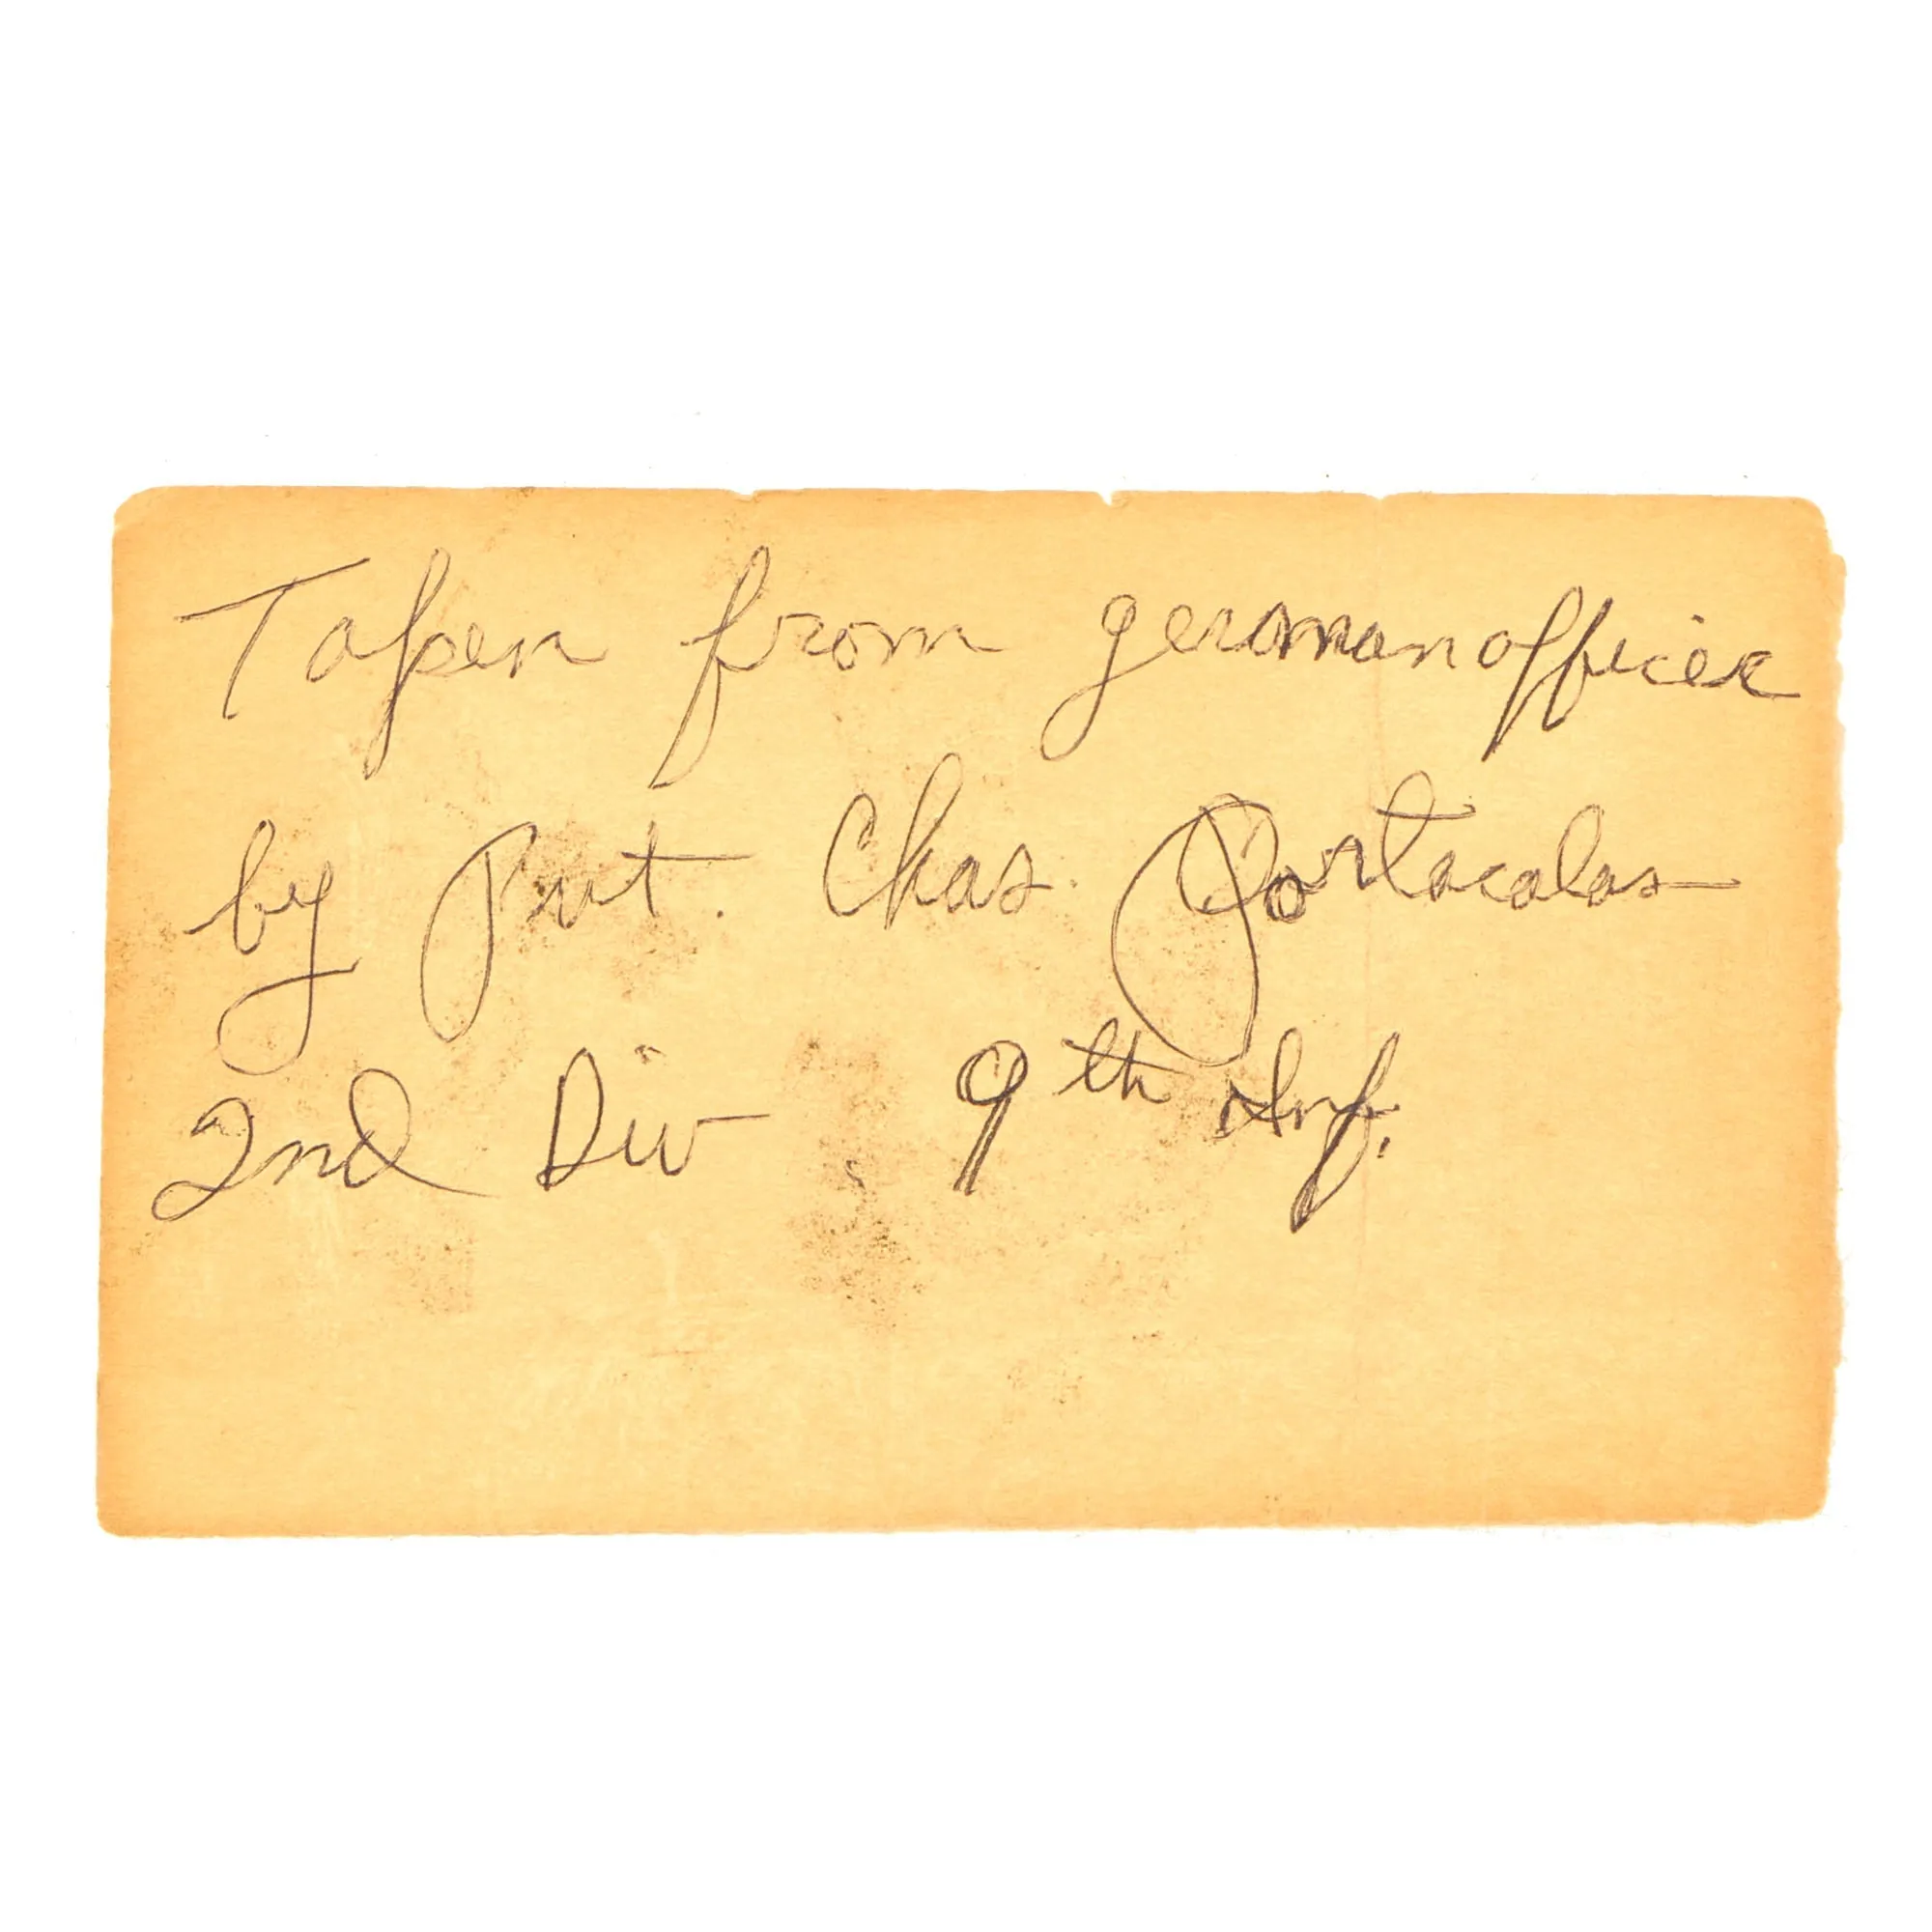 Taken from german officer
by Pvt. Chas. Portacalas
2nd Div. 9th Inf.